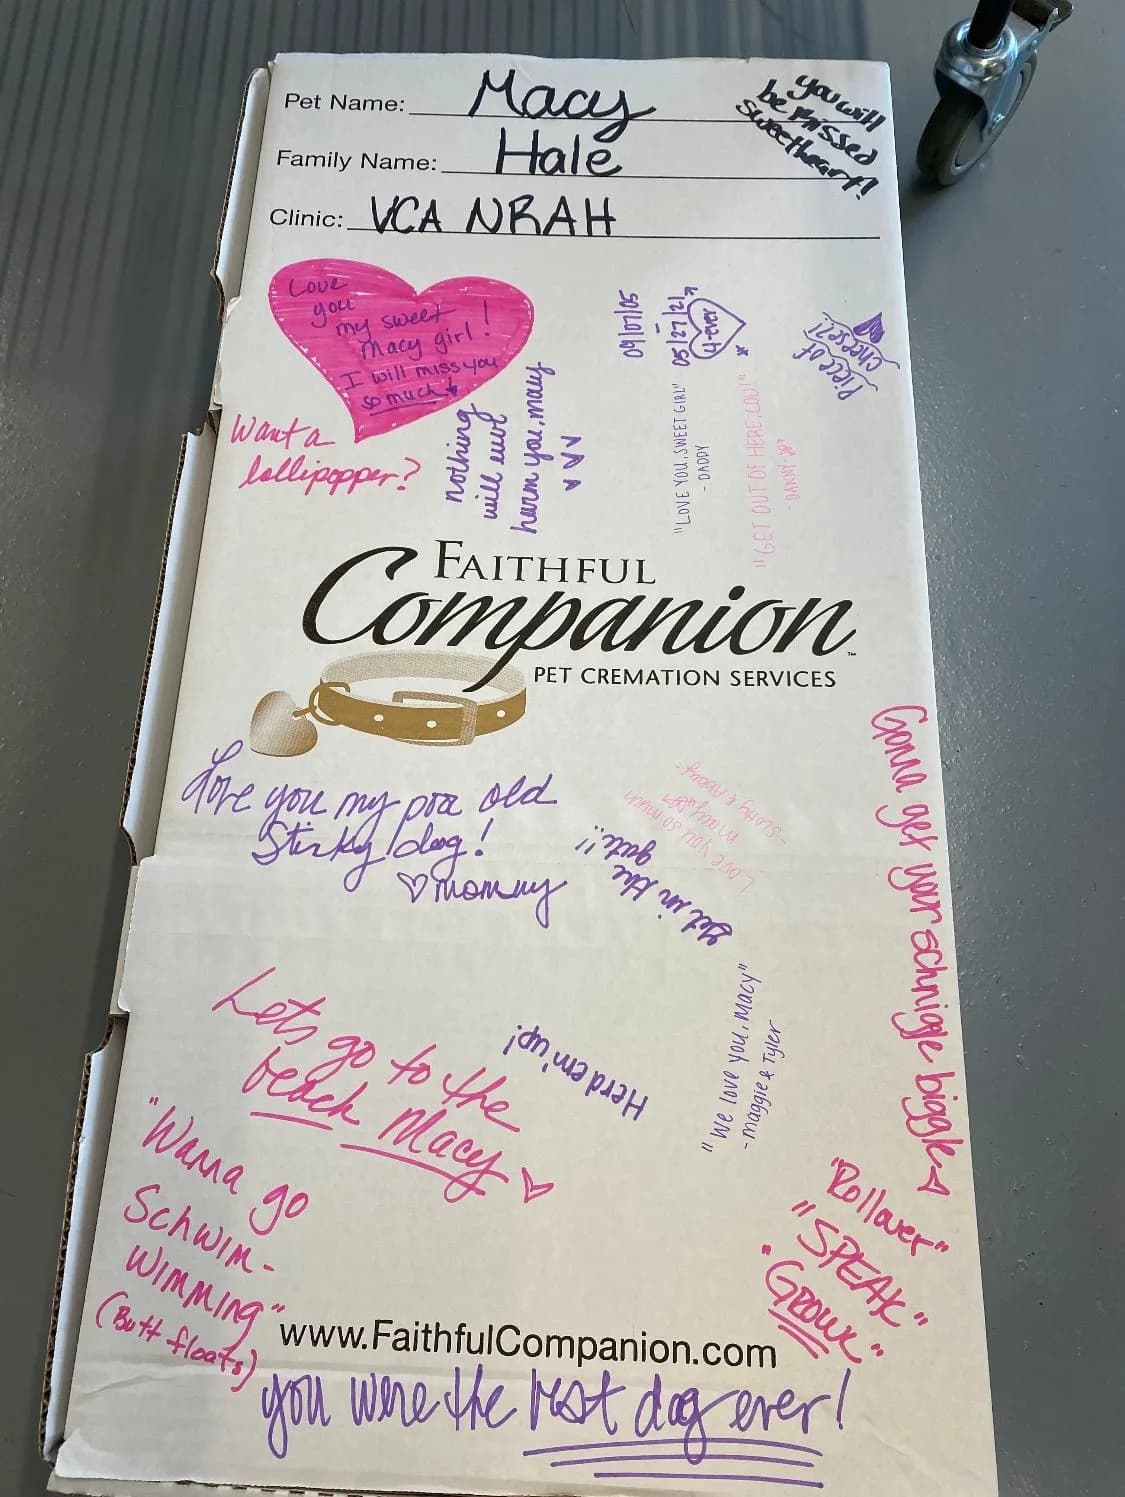 Pet Name: Macy
Family Name: Hale
Clinic: VCA NRAH
you will
be missed
sweetheart!
Love
you
my sweet
Macy girl!
I will miss you
so much
09/07/05
-
05/27/21
4-ever
Piece of
cheese?!
Want a
lollipopper?
nothing
will ever
harm you, macy
"LOVE YOU, SWEET GIRL"
- DADDY
"GET OUT OF HERE, LOU!"
- DANNY
FAITHFUL
Companion™
PET CREMATION SERVICES
Love you my poa old
Stinky dog!
mommy
Love you so much
Macy
- Scotty & Abbey -
Get in the
gate!!
Gonna get your schnigge biggle
Lets go to the
beach Macy
Herd em' up!
"We love you, Macy"
- Maggie & Tyler
"Wanna go
Schwim-
Wimming"
(Butt floats)
"Rollover"
"SPEAK"
"GROWL"
www.FaithfulCompanion.com
you were the best dog ever!